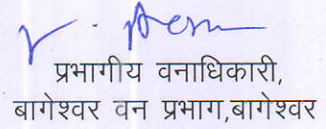 प्रभागीय वनाधिकारी,
बागेश्वर वन प्रभाग,बागेश्वर